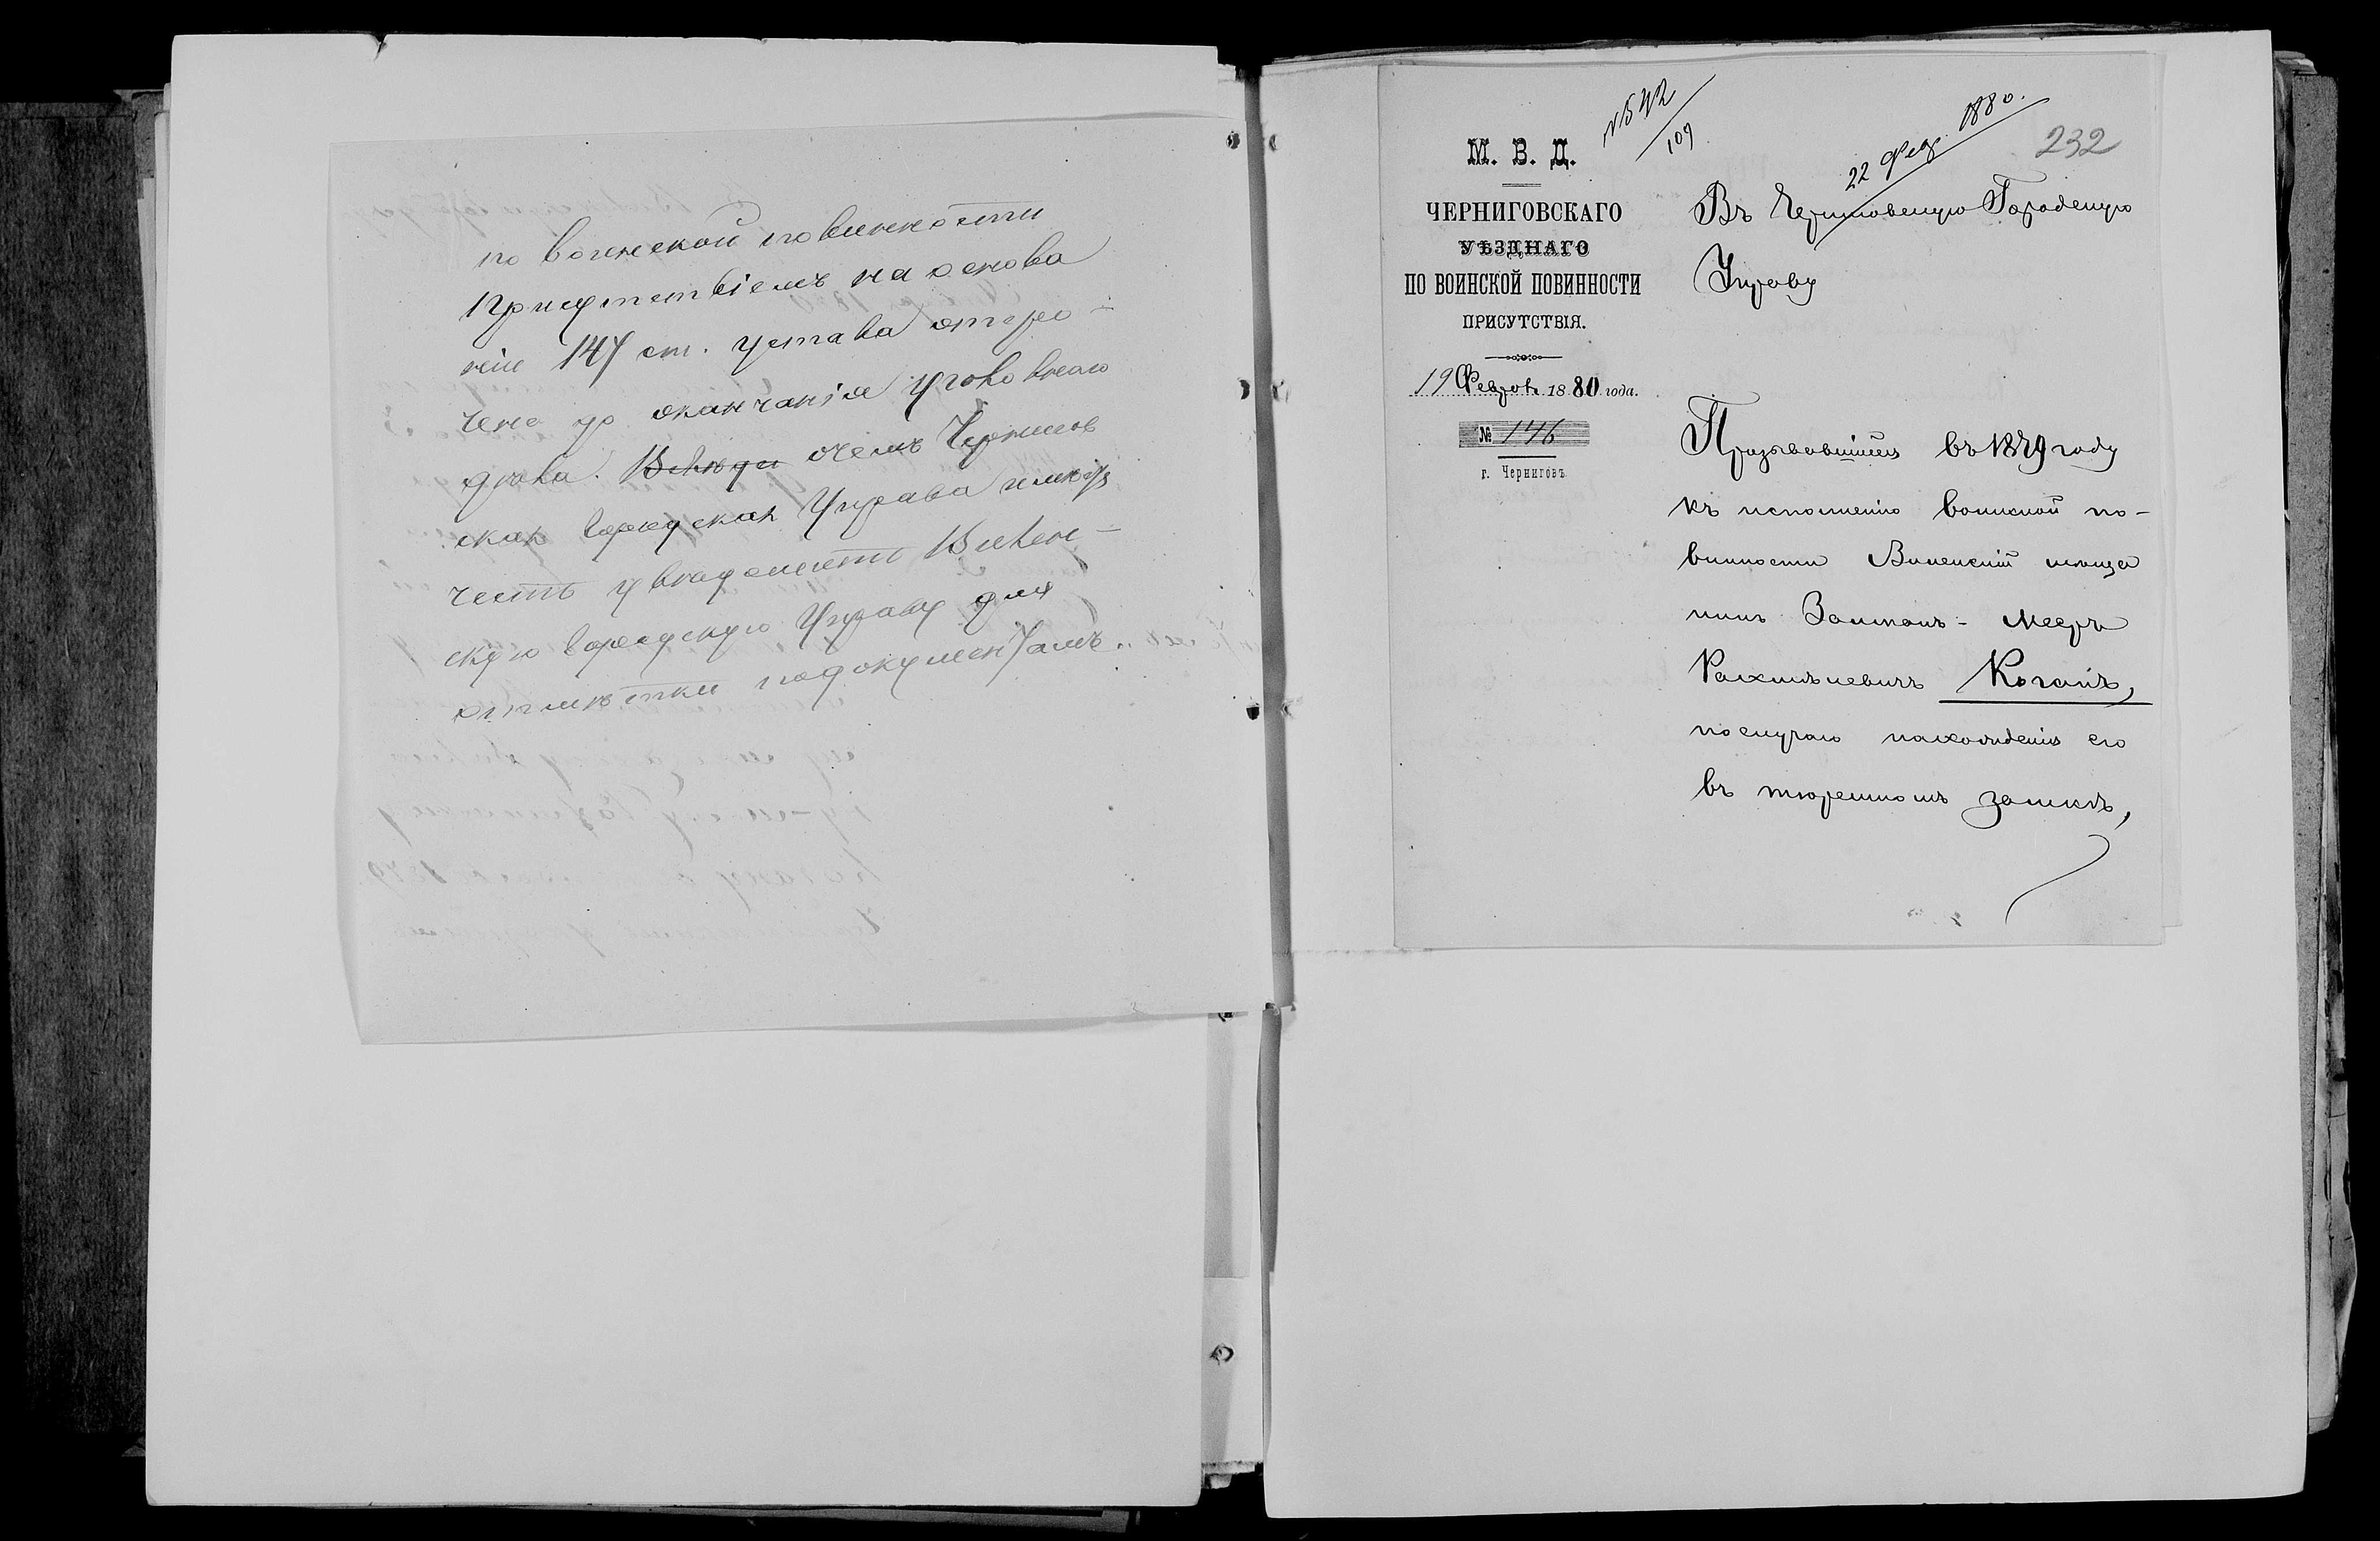 по воинской повинности
присутствіемъ на основа
ніи 147 ст. устава отсро-
чено до окончанія уголовнаго
дѣла. очемъ Чернигов
ская городская Управа имѣетъ
честь увѣдомить Вилен-
скую городскую Управу для
отмѣтки подокументамъ.
№ 542
109
22 Фев 1880.
232
М. В. Д.
ЧЕРНИГОВСКАГО
УѢЗДНАГО
ПО ВОИНСКОЙ ПОВИННОСТИ
ПРИСУТСТВІЯ.
19 Февраля 1880 года.
№ 146
г. Черниговъ
Въ Черниговскую Городскую
Управу
Призывавшійся въ 1879 году
къ исполненію воинской по-
винности Виленскій мѣща
нинъ Залманъ-Мееръ
Рахмѣлевичъ Коганъ,
послучаю нахожденія его
въ тюремномъ замкѣ,